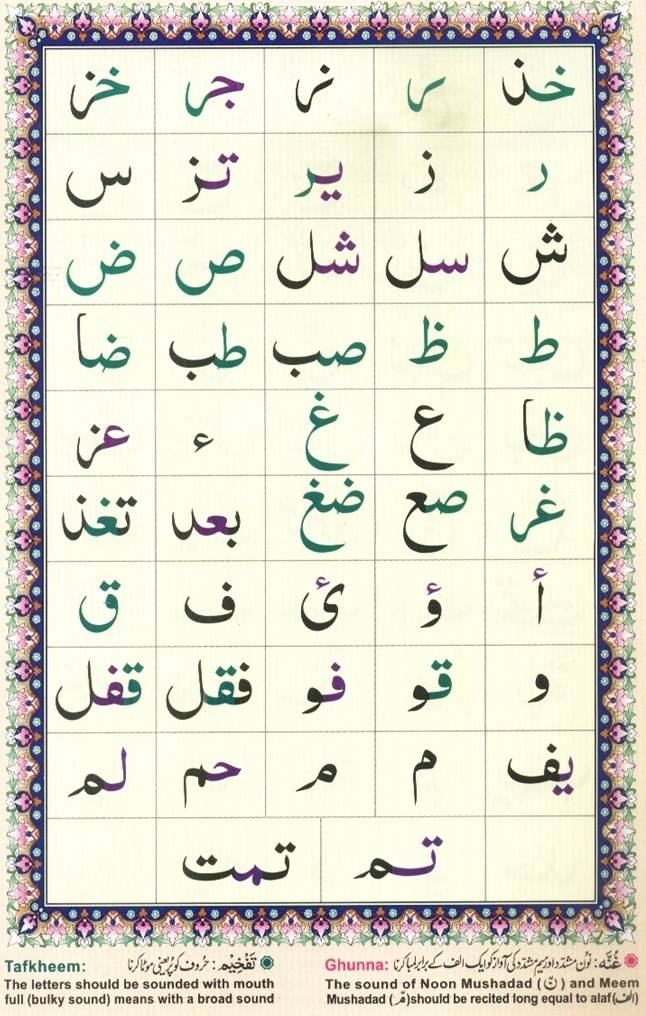 خذ ر نر جر خز
ر ز یر تز س
ش سل شل ص ض
ط ظ صب طب ضا
ظا ع غ ء عز
غر صع ضغ بعد تغذ
أ ؤ ئ ف ق
و قو فو فقل قفل
یف م م حم لم
تم تمت
غُنَّه: نُون مشدّد اور میم مشدّد کی آواز کو ایک الف کے برابر لمبا کرنا
Ghunna:
The sound of Noon Mushadad (نّ) and Meem
Mushadad (مّ) should be recited long equal to alaf (الف)
تَفْخِيْم: حُروف کو پُر یعنی موٹا کرنا
Tafkheem:
The letters should be sounded with mouth
full (bulky sound) means with a broad sound